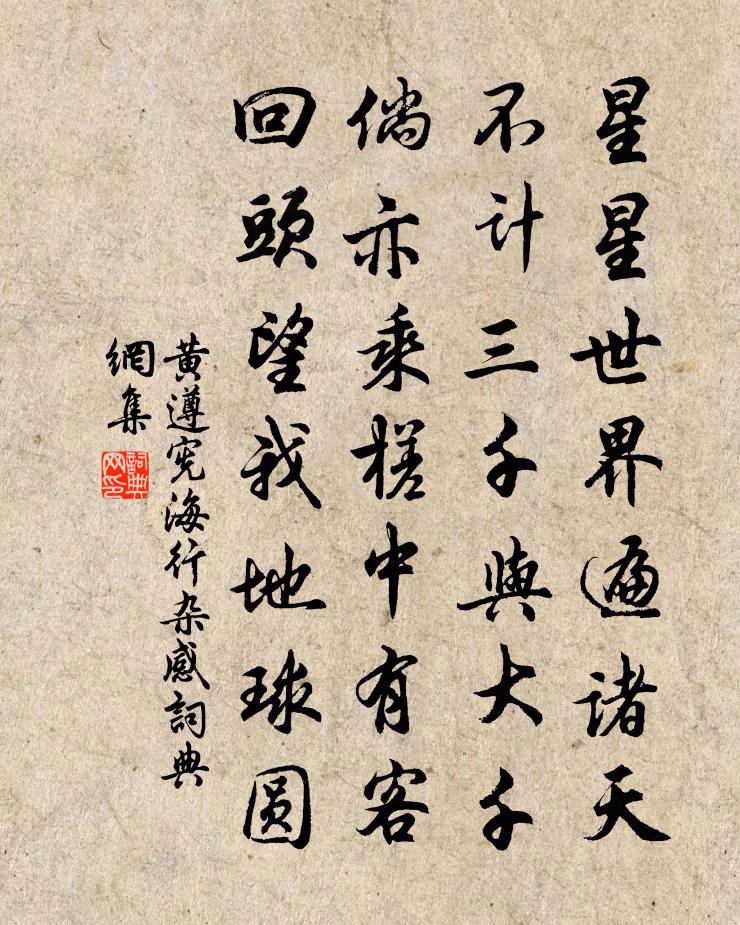 星星世界遍諸天
不计三千與大千
倘亦乘槎中有客
回頭望我地球圓
黄遵宪海行杂感詞典
網集
詞典
网印